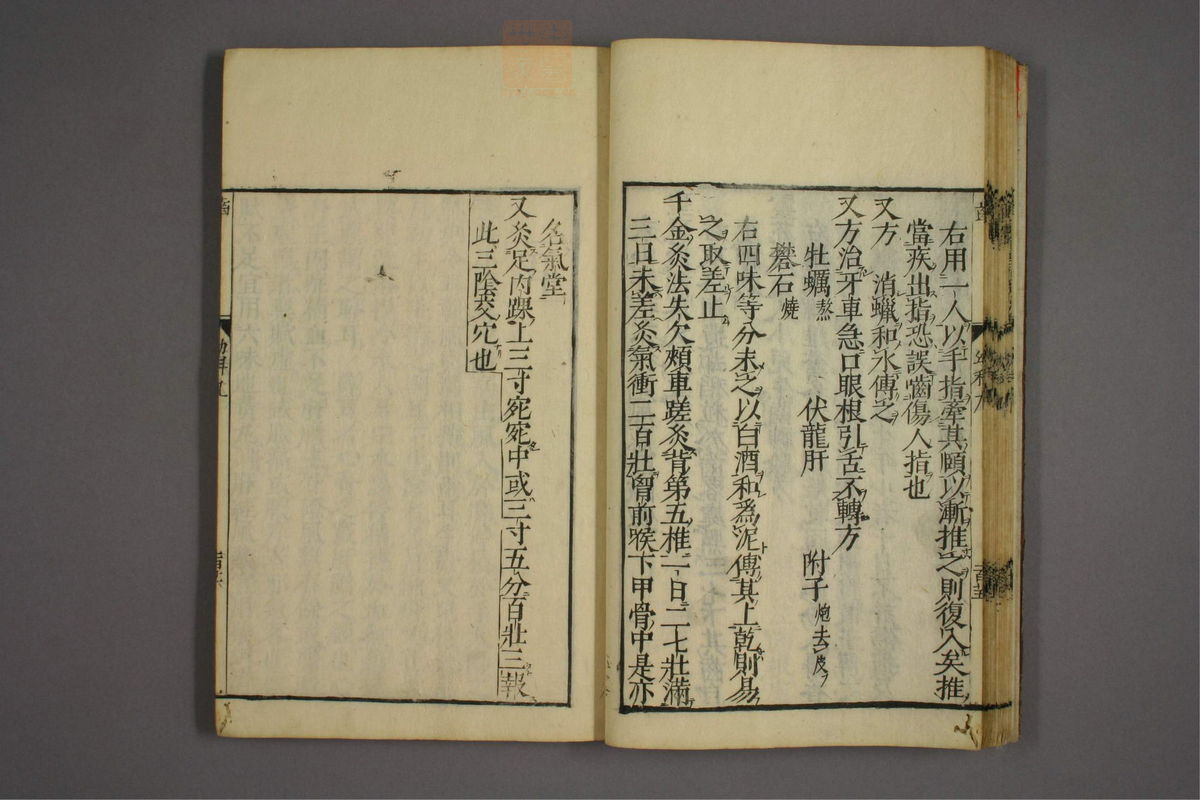 右用一人以手指牽其頤以漸推之則復入矣推
當疾出指恐誤嚙傷人指也
又方 消蠟和水傅之
又方治牙車急口眼根引舌不轉方
牡蠣熬 伏龍肝 附子炮去皮
礬石燒
右四味等分末之以白酒和爲泥傅其上乾則易
之取差止
千金灸法失欠頰車蹉灸背第五椎一日二七壯滿
三日未差灸氣衝二百壯胷前喉下甲骨中是亦
名氣堂
又灸足內踝上三寸宛宛中或三寸五分百壯三報
此三陰交穴也